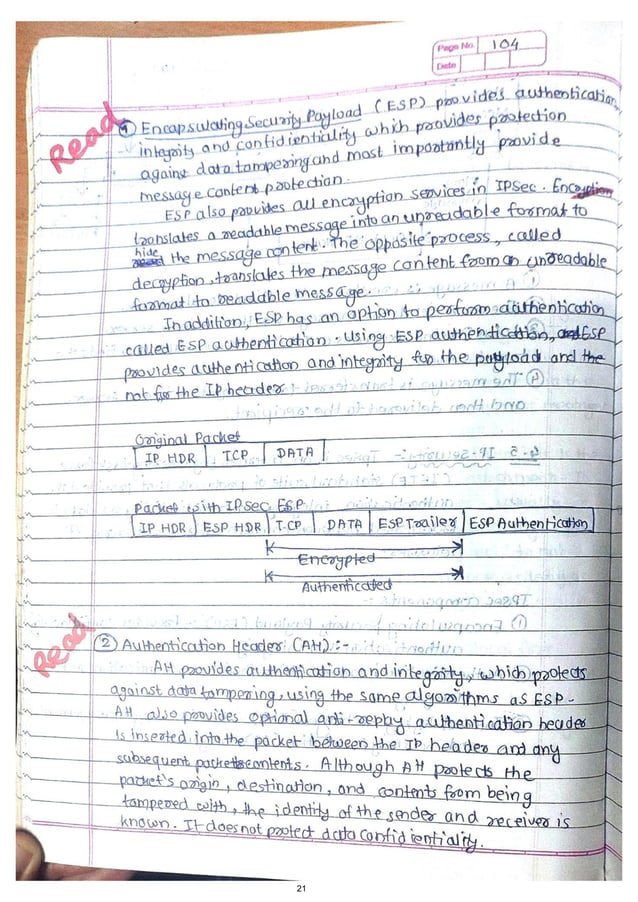 Page No. 104
Date
Read
① Encapsulating Security Payload (ESP) provides authentication,
integrity and confidientiality which provides protection
agains data tampering and most importantly provide
message content protection.
ESP also provides all encryption services in IPSec. Encryption
translates a readable message into an unreadable format to
hide the message content. The opposite process, called
decryption, translates the message content from an unreadable
format to readable message.
In addition, ESP has an option to perform authentication
called ESP authentication. Using ESP authentication, ESP
provides authentication and integrity for the payload and the
not for the IP header.
Original Packet
IP HDR TCP DATA
Packet with IPsec ESP
IP HDR ESP HDR TCP DATA ESP Trailer ESP Authentication
Encrypted
Authenticated
Read
② Authentication Header (AH) :-
AH provides authentication and integrity, which protects
against data tampering, using the same algorithms as ESP.
AH also provides optional anti-replay authentication header
is inserted into the packet between the IP header and any
subsequent packet contents. Although AH protects the
packet's origin, destination, and contents from being
tampered with, the identity of the sender and receiver is
known. It does not protect data confidientiality.
21